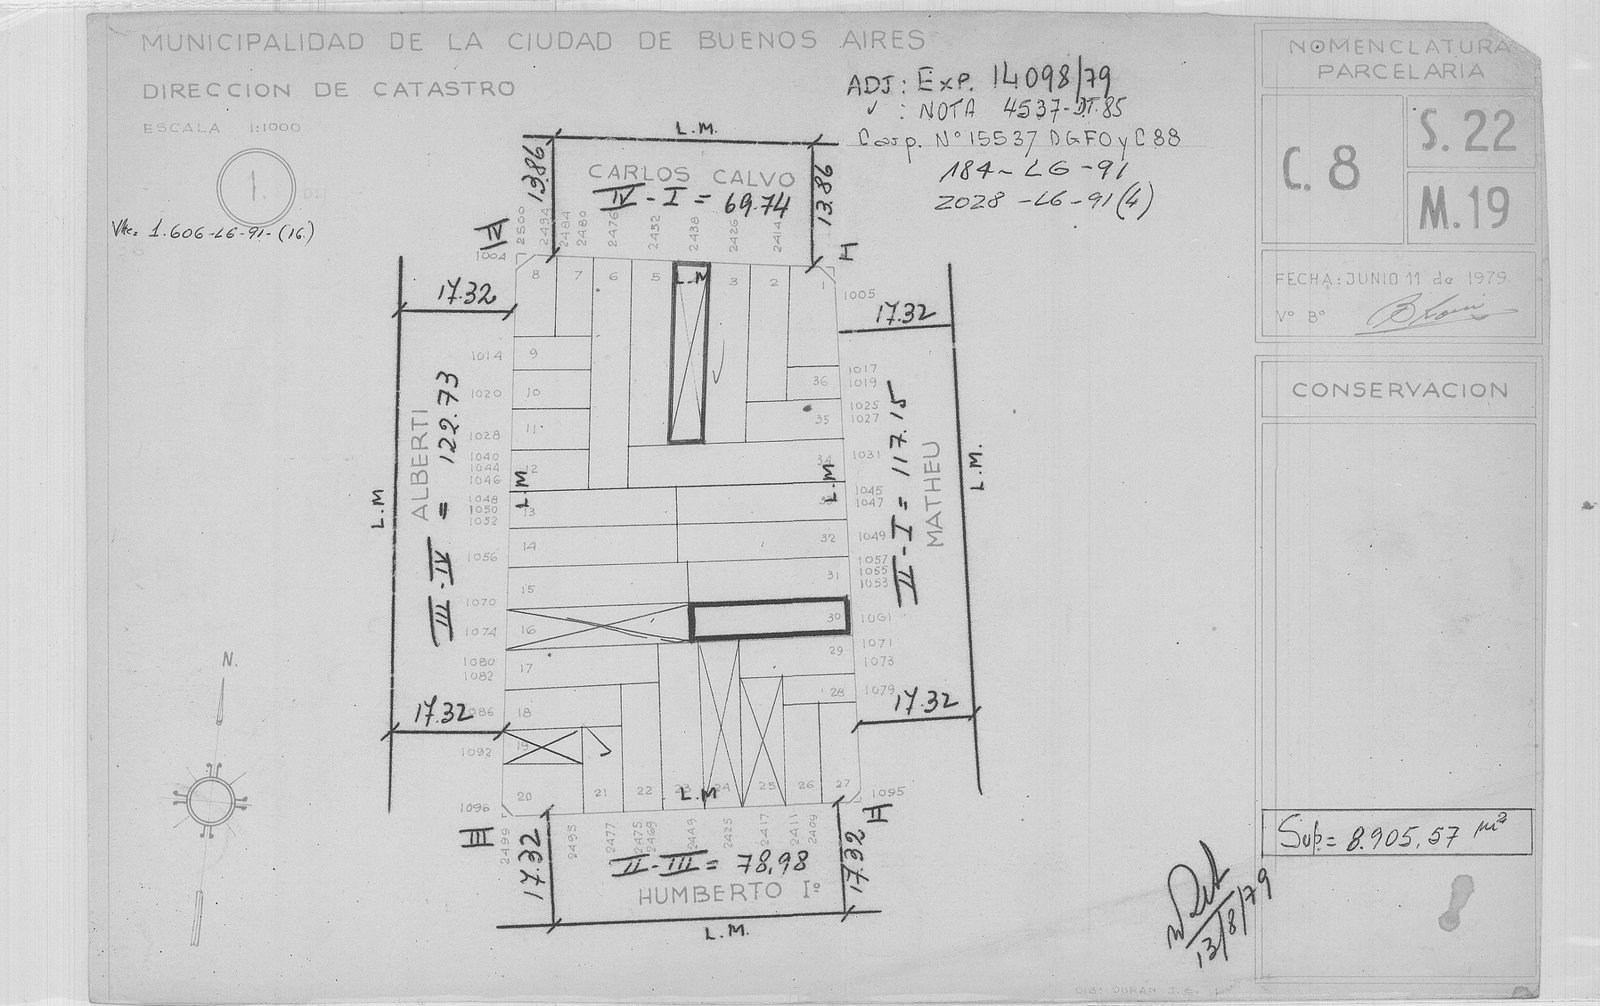 MUNICIPALIDAD DE LA CIUDAD DE BUENOS AIRES
DIRECCION DE CATASTRO
ESCALA 1:1000
1.
1.606-LG-91-(16.)
ADJ: Exp. 14098/79
✓ : NOTA 4537-DT.85
Carp. N° 15537 DGFOyC 88
184-LG-91
2028-LG-91(4)
NOMENCLATURA
PARCELARIA
C. 8
S. 22
M. 19
FECHA: JUNIO 11 de 1979
V° B°
CONSERVACION
Sup.= 8.905,57 m²
13/8/79
L.M.
13.86
CARLOS CALVO
IV-I = 69.74
13.86
2500
2494
2484
2480
2476
2452
2438
2426
2414
IV
I
1004
8
7
6
5
L.M
3
2
1
1005
17.32
17.32
1014
9
1017
1019
36
1020
10
1025
1027
35
1028
11
1031
34
1040
1044
1046
L.M
L.M
1045
1047
1048
1050
1052
13
1049
32
14
1056
1057
1055
1053
31
15
1070
1074
16
30
1061
1071
29
1073
1080
1082
17
28
1079
18
1092
19
1096
20
21
22
23
L.M
24
25
26
27
1095
17.32
17.32
L.M
ALBERTI
III-IV = 122.73
II-I = 117.15
MATHEU
L.M.
III
II
2499
2495
2477
2475
2469
2449
2425
2417
2411
2409
17.32
17.32
II-III = 78,98
HUMBERTO I°
L.M.
N.
DIB: DURAN J.E.